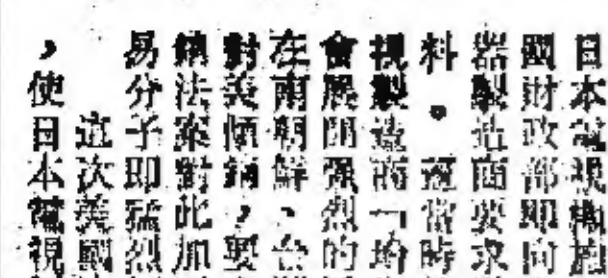 日本電視機
國財政部即向
器製造商要求
料。當時
視製造商一均
會展開强烈的
在南朝鮮、台
對美傾銷，要
銷法案對此加
易分子即猛烈
這次美國
，使日本電視